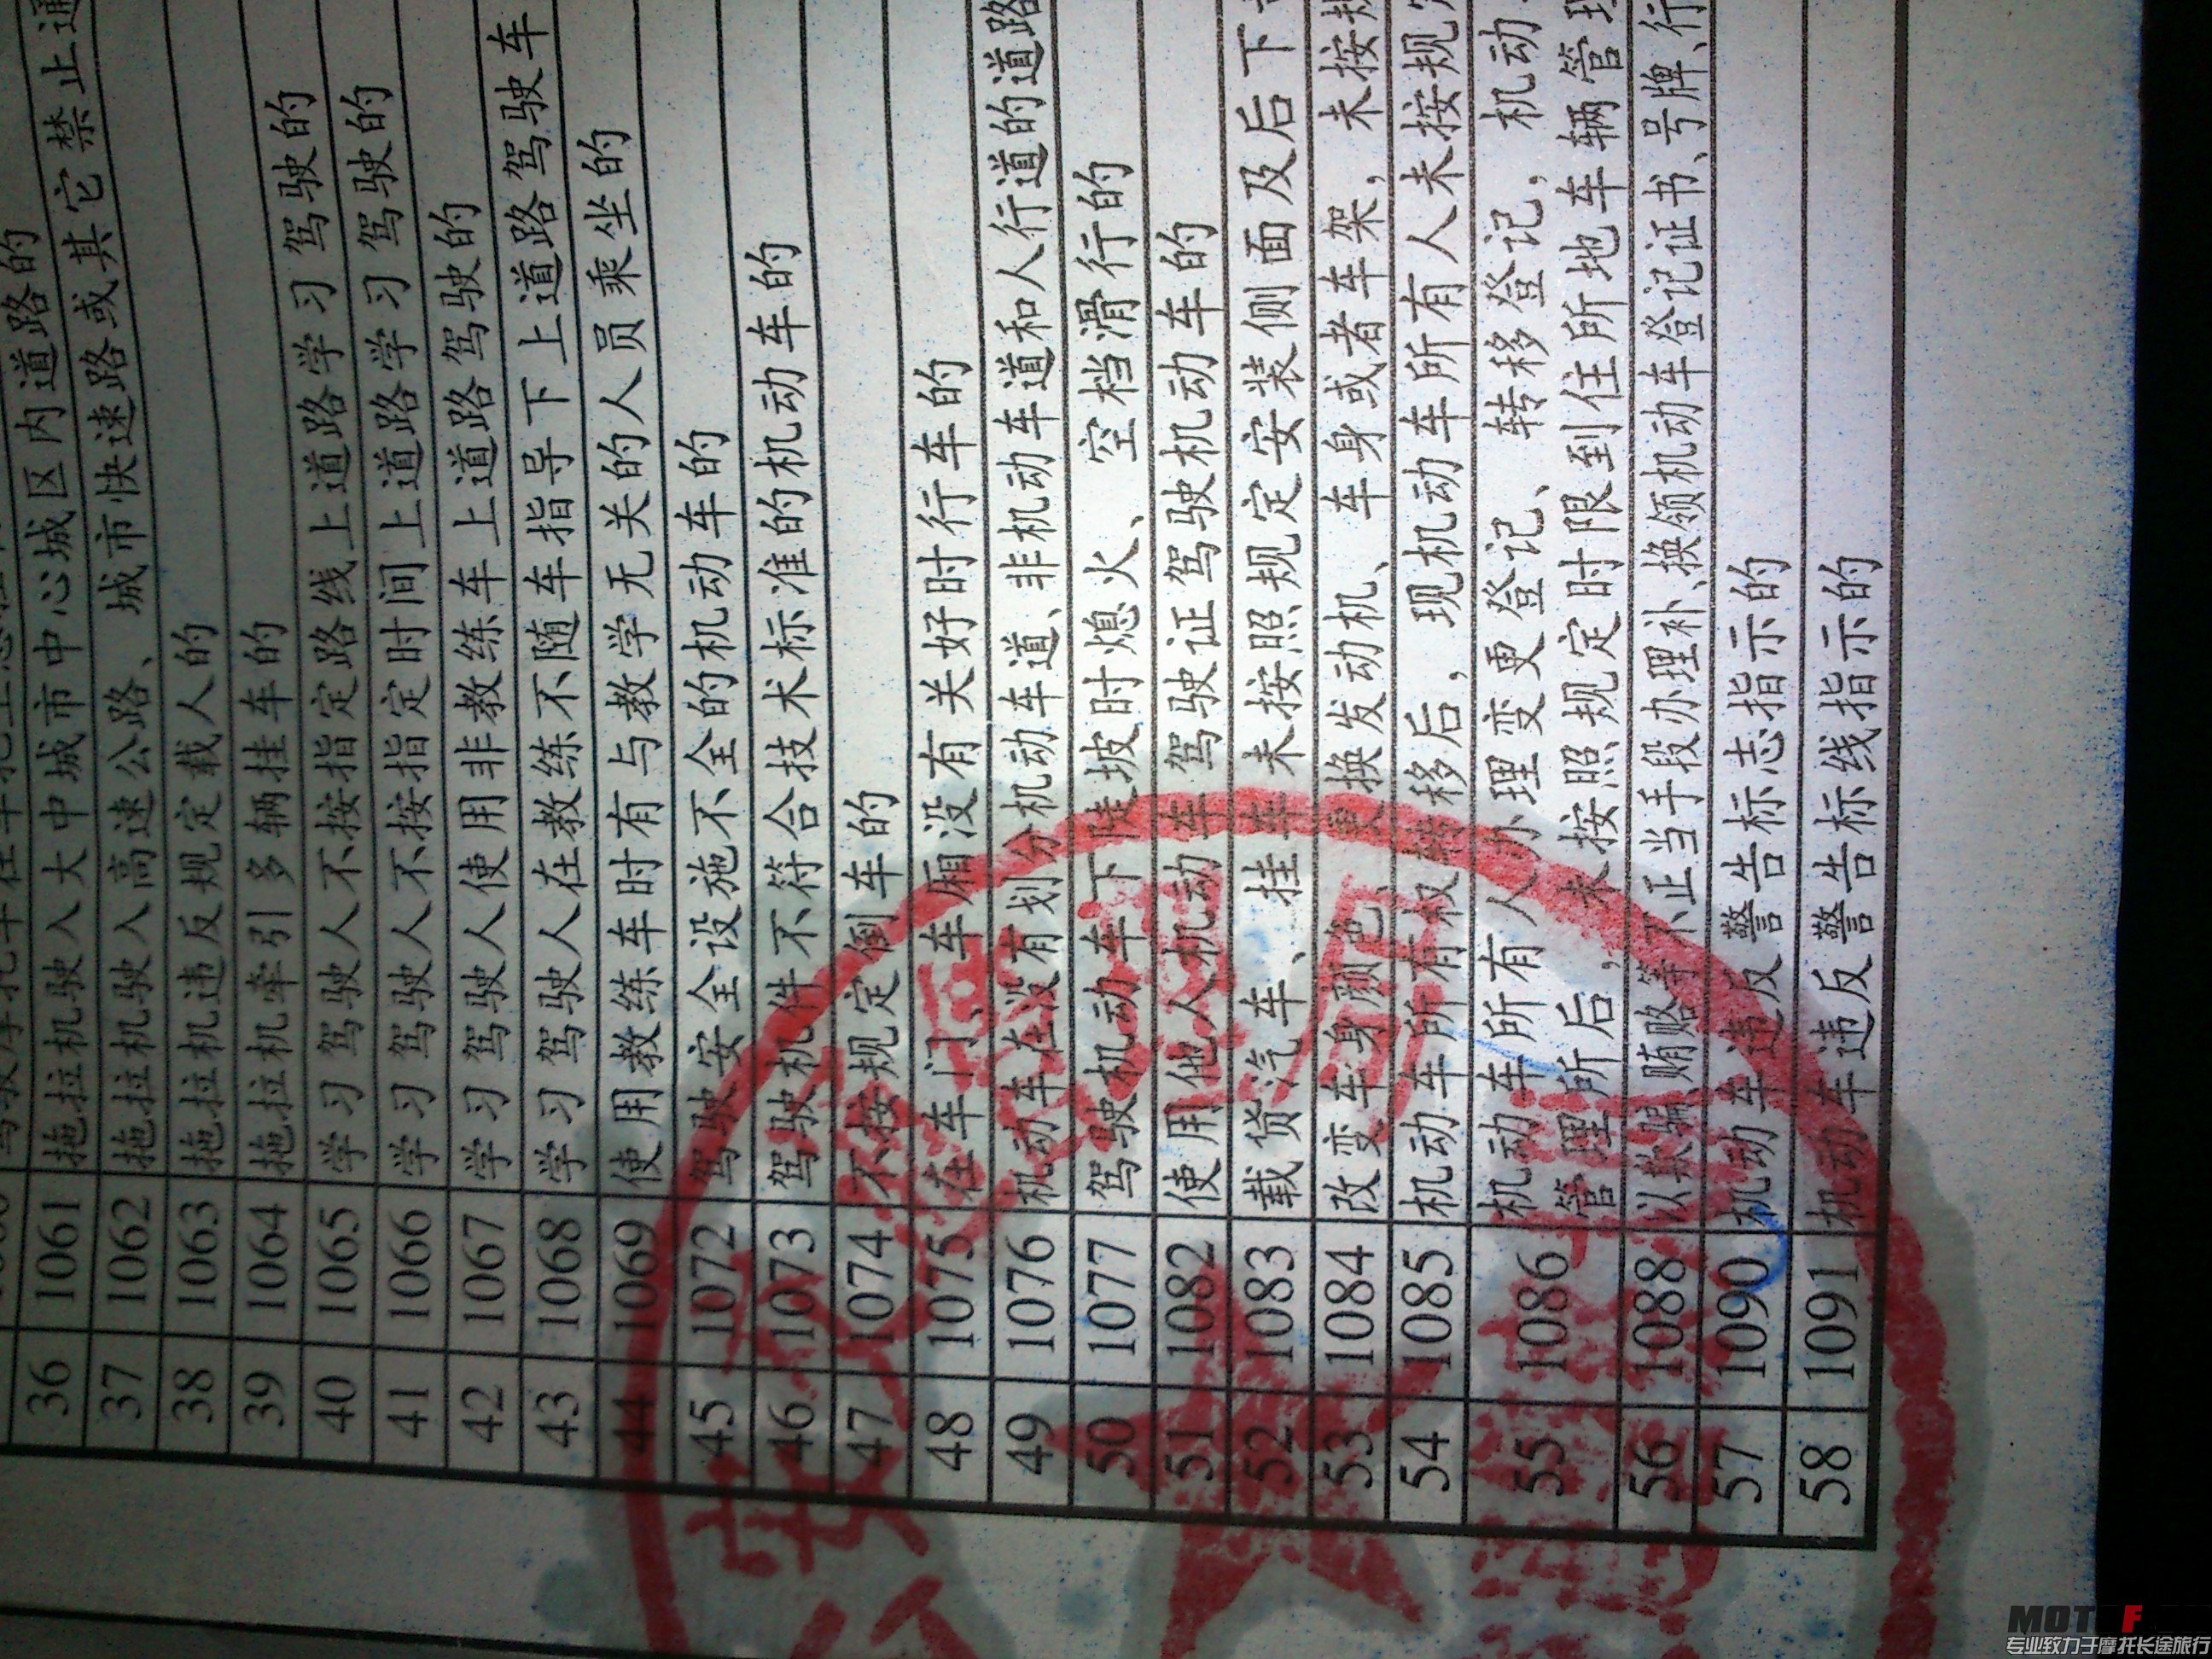 36 1061 拖拉机驶入大中城市中心城区内道路的
37 1062 拖拉机驶入高速公路、城市快速路或其它禁止通
38 1063 拖拉机违反规定载人的
39 1064 拖拉机牵引多辆挂车的
40 1065 学习驾驶人不按指定路线上道路学习驾驶的
41 1066 学习驾驶人不按指定时间上道路学习驾驶的
42 1067 学习驾驶人使用非教练车上道路驾驶的
43 1068 学习驾驶人在教练不随车指导下上道路驾驶车
44 1069 使用教练车时有与教学无关的人员乘坐的
45 1072 驾驶安全设施不全的机动车的
46 1073 驾驶机件不符合技术标准的机动车的
47 1074 不按规定倒车的
48 1075 在车门、车厢没有关好时行车的
49 1076 机动车在没有划分机动车道、非机动车道和人行道的道路
50 1077 驾驶机动车下陡坡时熄火、空档滑行的
51 1082 使用他人机动车驾驶证驾驶机动车的
52 1083 载货汽车、挂车未按照规定安装侧面及后下
53 1084 改变车身颜色、更换发动机、车身或者车架,未按规
54 1085 机动车所有权转移后,现机动车所有人未按规
55 1086 机动车所有人办理变更登记、转移登记,机动
管理所后,未按照规定时限到住所地车辆管理
56 1088 以欺骗、贿赂等不正当手段办理补、换领机动车登记证书、号牌、行
57 1090 机动车违反警告标志指示的
58 1091 机动车违反警告标线指示的
MOT F
专业致力于摩托长途旅行